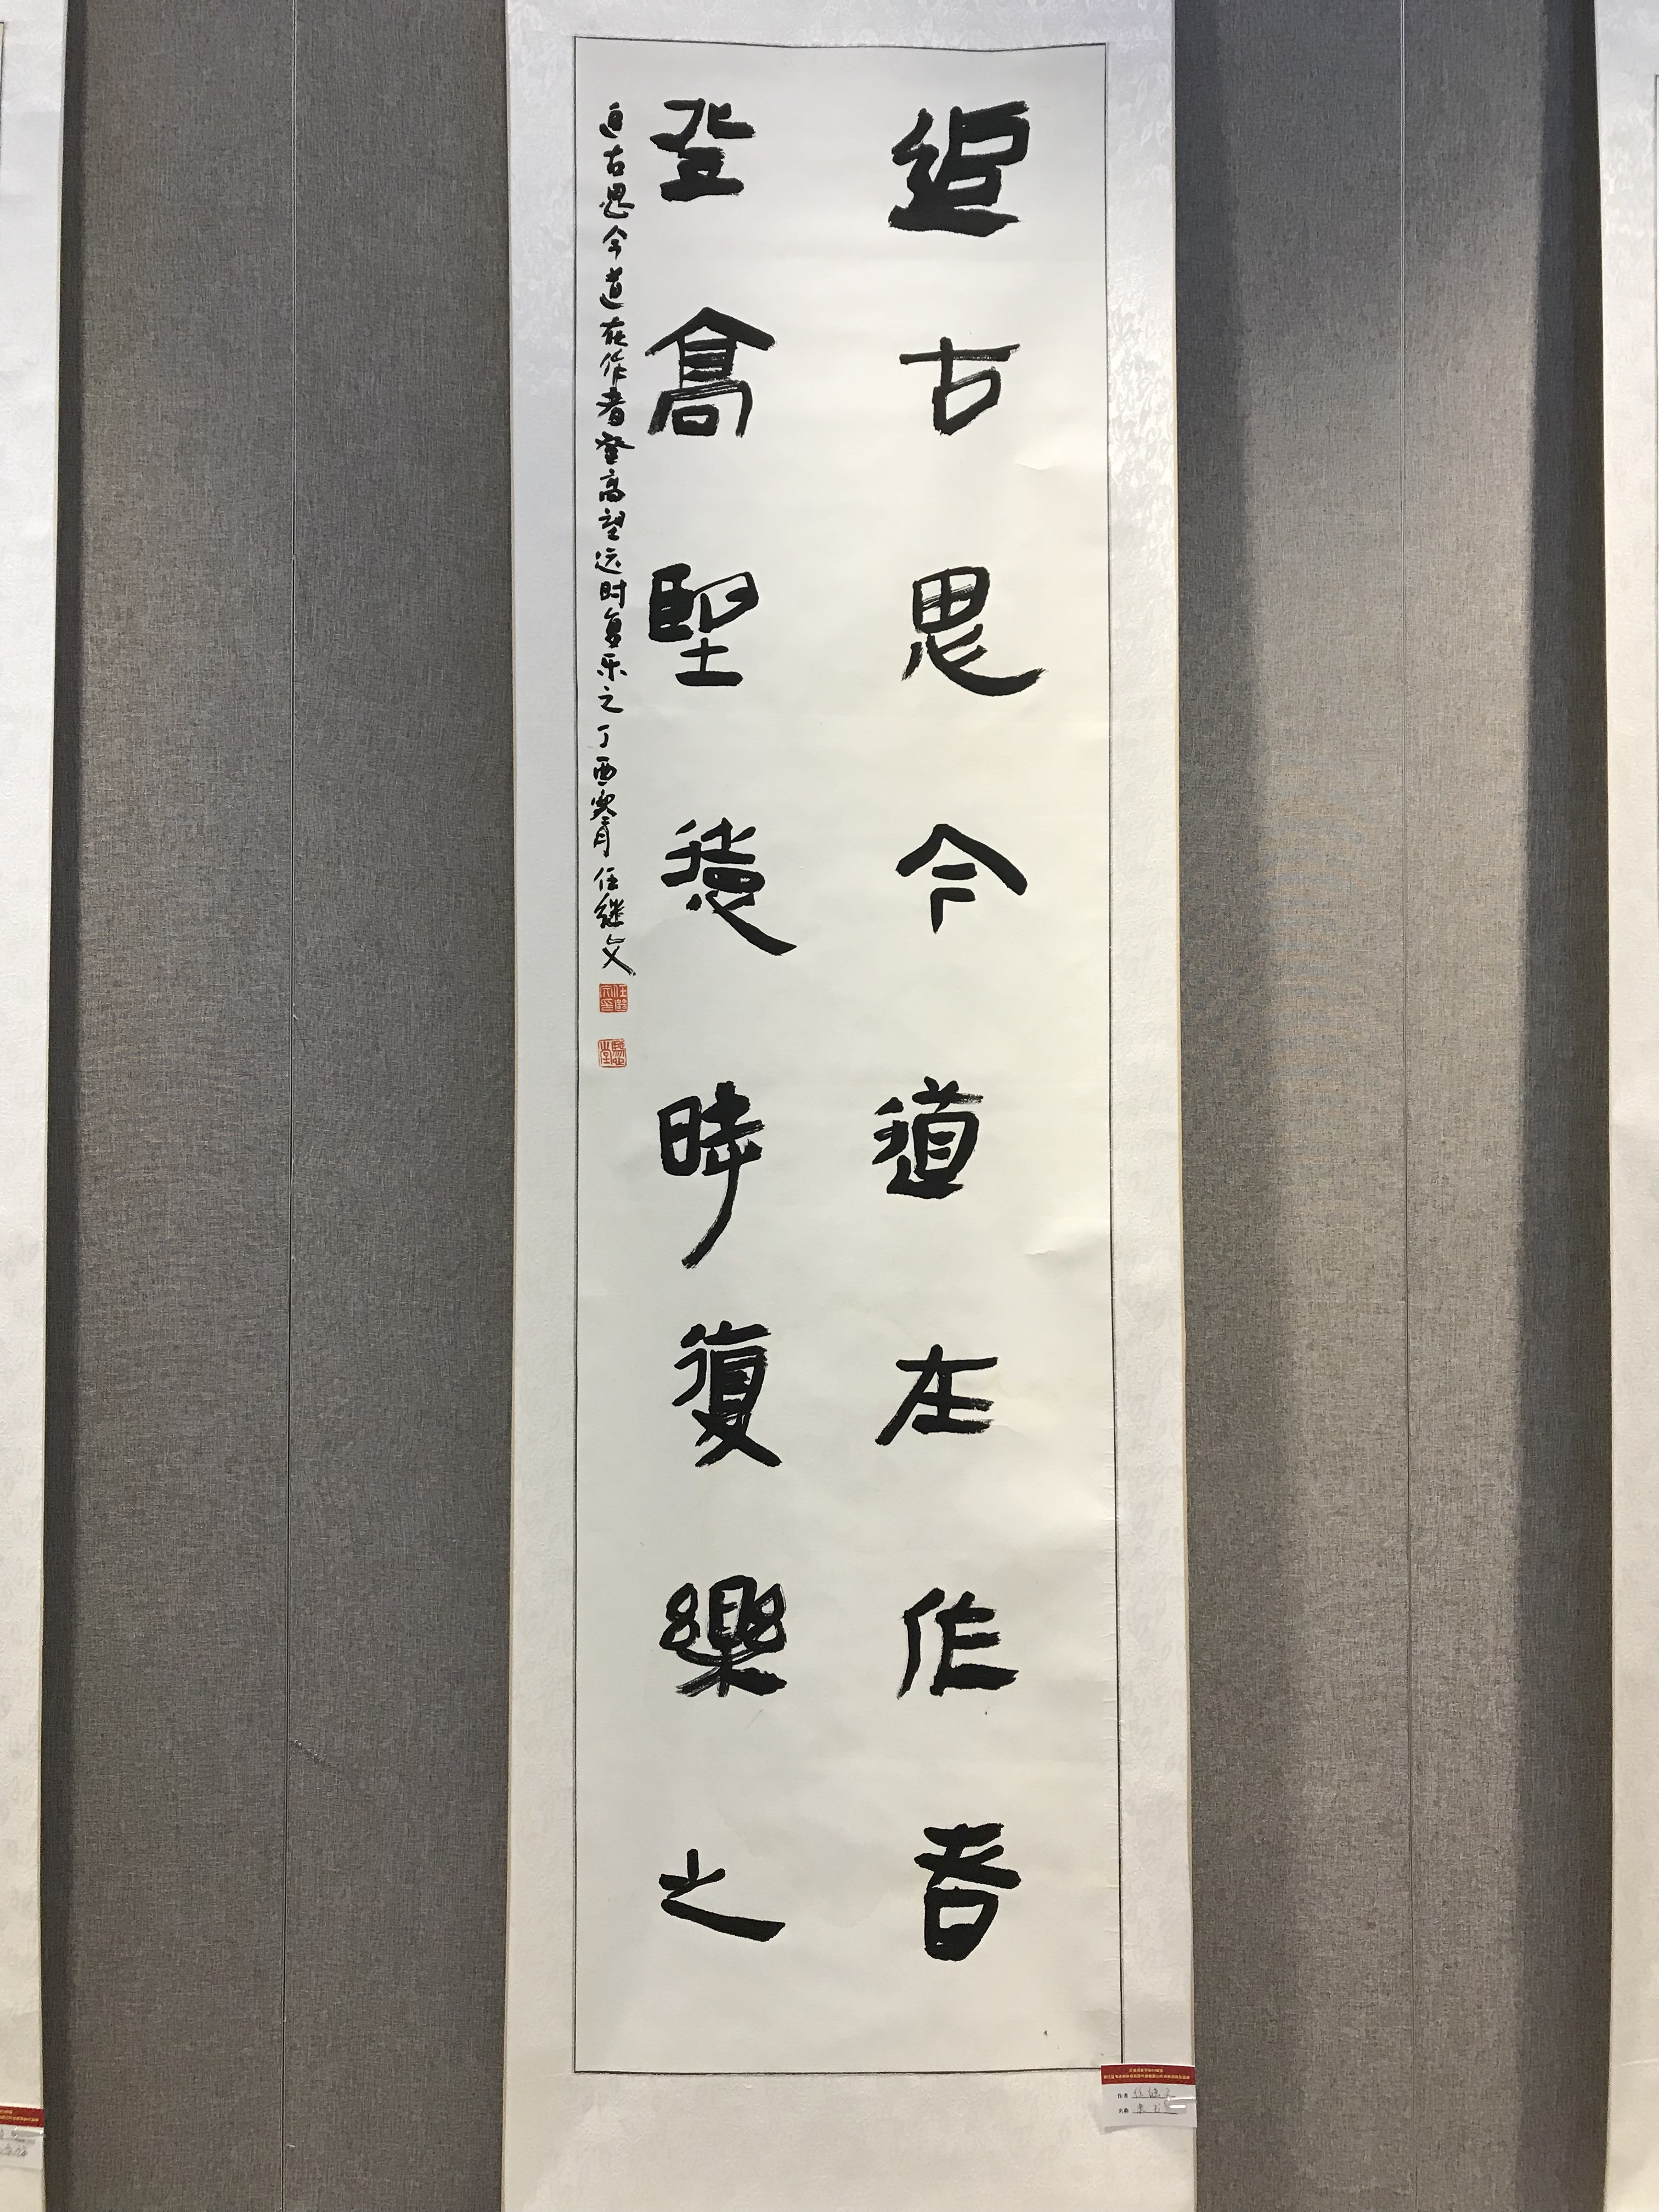 追古思今道在作者
登高望遠時復樂之
追古思今道在作者登高望远时复乐之丁酉寒月任继文
作者 任继文
名称